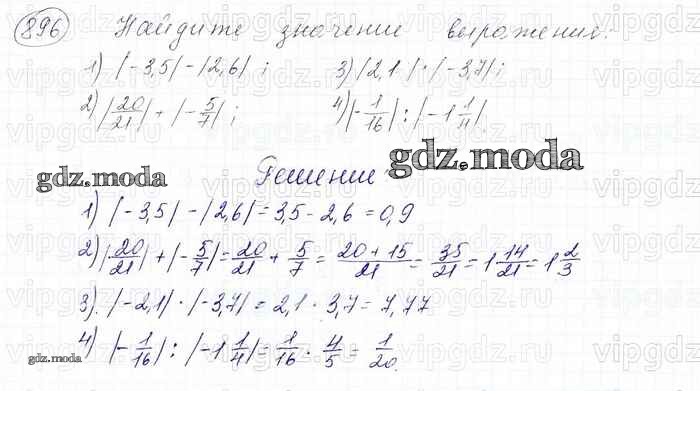 896 Найдите значение выражения:
1) |-3,5| - |2,6|; 3) |2,1| · |-3,7|;
2) |20/21| + |-5/7|; 4) |-1/16| : |-1 1/11|.
gdz.moda
gdz.moda
Решение
1) |-3,5| - |2,6| = 3,5 - 2,6 = 0,9
2) |20/21| + |-5/7| = 20/21 + 5/7 = 20+15/21 = 35/21 = 1 14/21 = 1 2/3
3) |-2,1| · |-3,7| = 2,1 · 3,7 = 7,77
4) |-1/16| : |-1 1/4| = 1/16 · 4/5 = 1/20.
gdz.moda